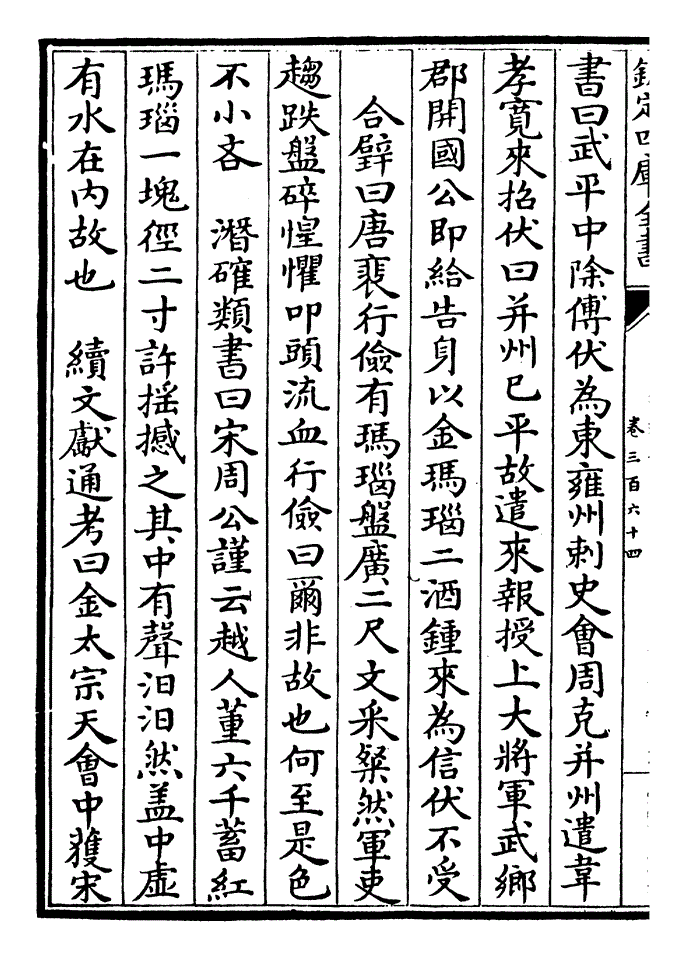 欽定四庫全書
卷三百六十四
書曰武平中除傅伏為東雍州刺史會周克并州遣韋
孝寬來招伏曰并州已平故遣來報授上大將軍武鄉
郡開國公即給告身以金瑪瑙二酒鍾來為信伏不受
合璧曰唐裴行儉有瑪瑙盤廣二尺文采粲然軍吏
趨跌盤碎惶懼叩頭流血行儉曰爾非故也何至是色
不小吝　潛確類書曰宋周公謹云越人董六千蓄紅
瑪瑙一塊徑二寸許揺撼之其中有聲汩汩然盖中虛
有水在内故也　續文獻通考曰金太宗天會中獲宋